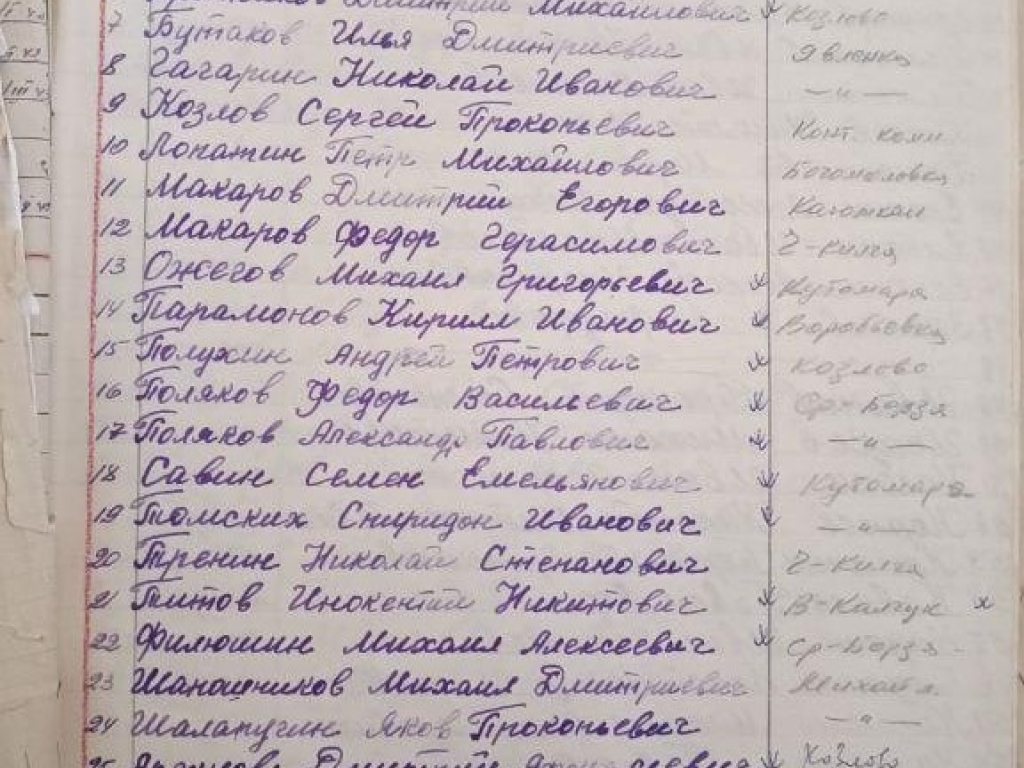 Дмитрий Михайлович Козлово
7 Бутаков Илья Дмитриевич Явленка
8 Гагарин Николай Иванович —„—
9 Козлов Сергей Прокопьевич Конт. комн.
10 Лопатин Петр Михайлович Богомоловка
11 Макаров Дмитрий Егорович
12 Макаров Федор Герасимович Ч-Килга
13 Ожегов Михаил Григорьевич Кутомара
14 Парамонов Кирилл Иванович Воробьевка
15 Полухин Андрей Петрович Козлово
16 Поляков Федор Васильевич Ср-Борзя
17 Поляков Александр Павлович —„—
18 Савин Семен Емельянович Кутомара
19 Томских Спиридон Иванович —„—
20 Тренин Николай Степанович Ч-Килга
21 Титов Инокентий Никитович В-Калгук х
22 Филюшин Михаил Алексеевич Ср-Борзя
23 Шапошников Михаил Дмитриевич
24 Шалапугин Яков Прокопьевич —„—
25 Дмитрий Козлово